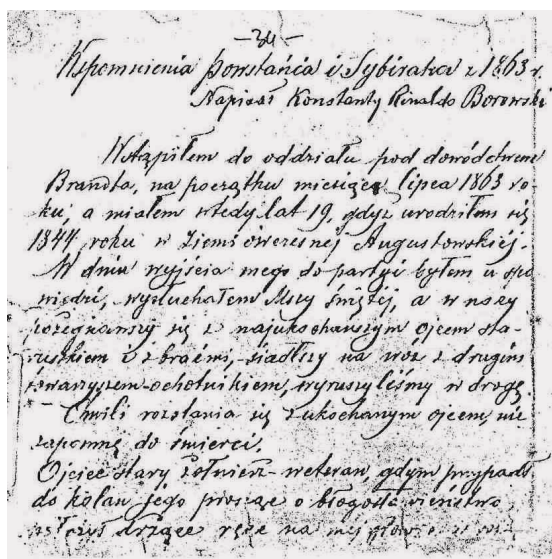 -34-
Wspomnienia powstańca i Sybiraka z 1863 r.
Napisał Konstanty Rinaldo Borowski
Wstąpiłem do oddziału pod dowództwem
Brandta, na początku miesiąca lipca 1863 ro-
ku, a miałem wtedy lat 19, gdyż urodziłem się
1844 roku w Ziemi ówczesnej Augustowskiej.
W dniu wyjścia mego do partyi byłem u spo-
wiedzi, wysłuchałem Mszy świętej, a w nocy
pożegnawszy się z najukochańszym ojcem sta-
ruszkiem i z braćmi, siadłszy na wóz z drugim
towarzyszem-ochotnikiem, wyruszyliśmy w drogę.
Chwili rozstania się z ukochanym ojcem, nie
zapomnę do śmierci.
Ojciec stary żołnierz-weteran, gdym przypadł
do kolan jego prosząc o błogosławieństwo,
drżące ręce na mej głowie